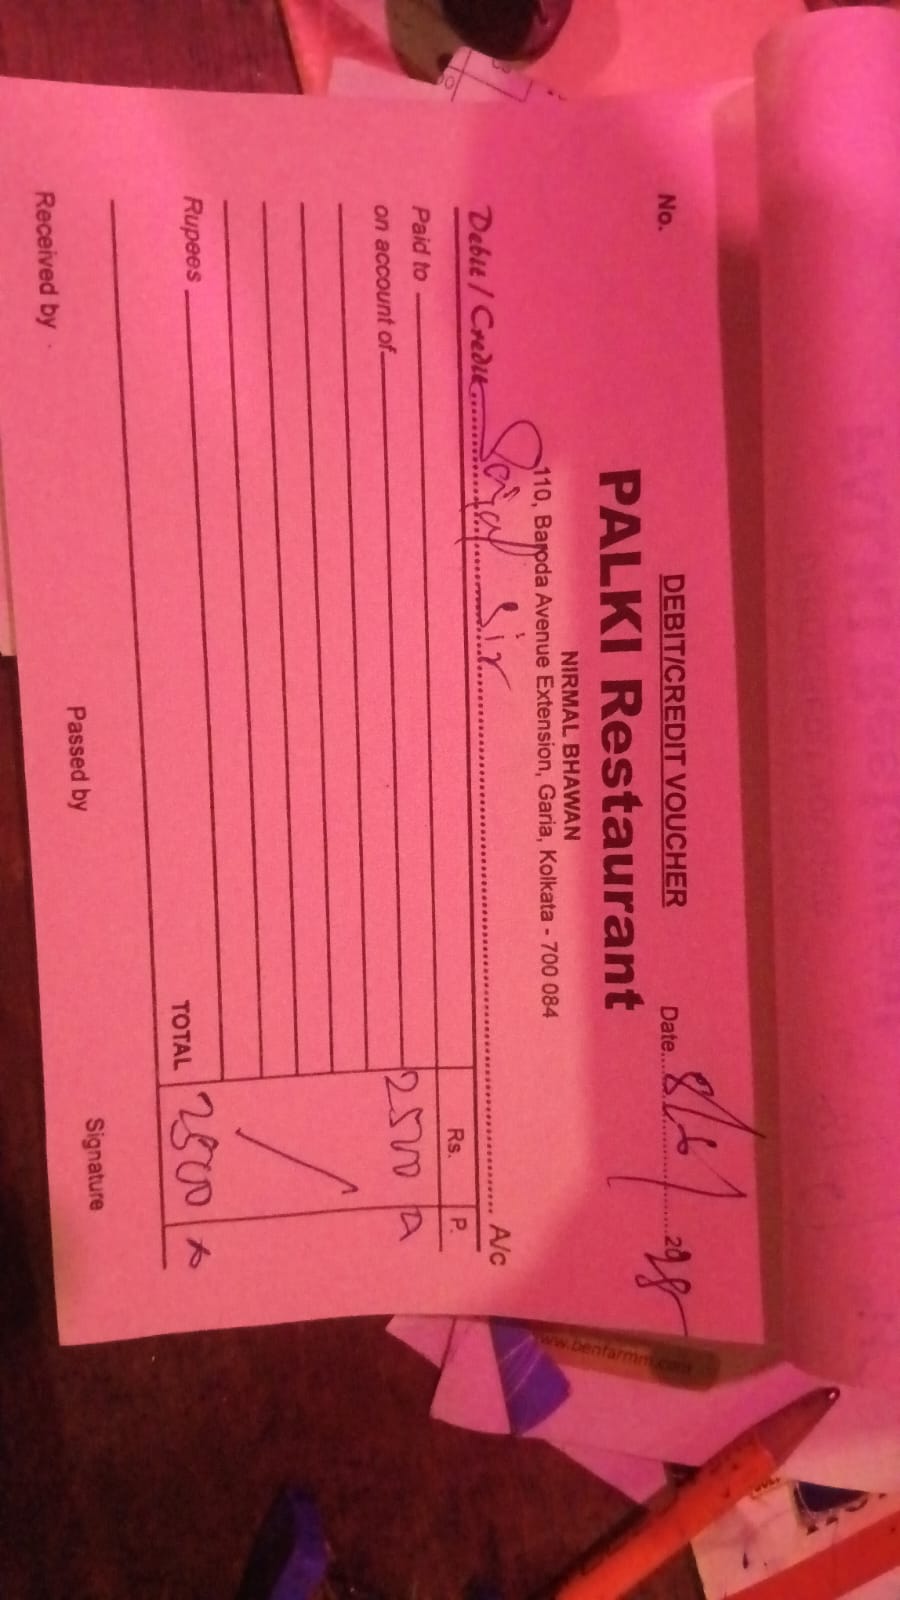 DEBIT/CREDIT VOUCHER
No.
Date
PALKI Restaurant
NIRMAL BHAWAN
110, Baroda Avenue Extension, Garia, Kolkata - 700 084
Debit / Credit Sir A/c
Rs. P.
Paid to
on account of 2500
Rupees
TOTAL 2500
Received by
Passed by
Signature
www.benfarmm.com